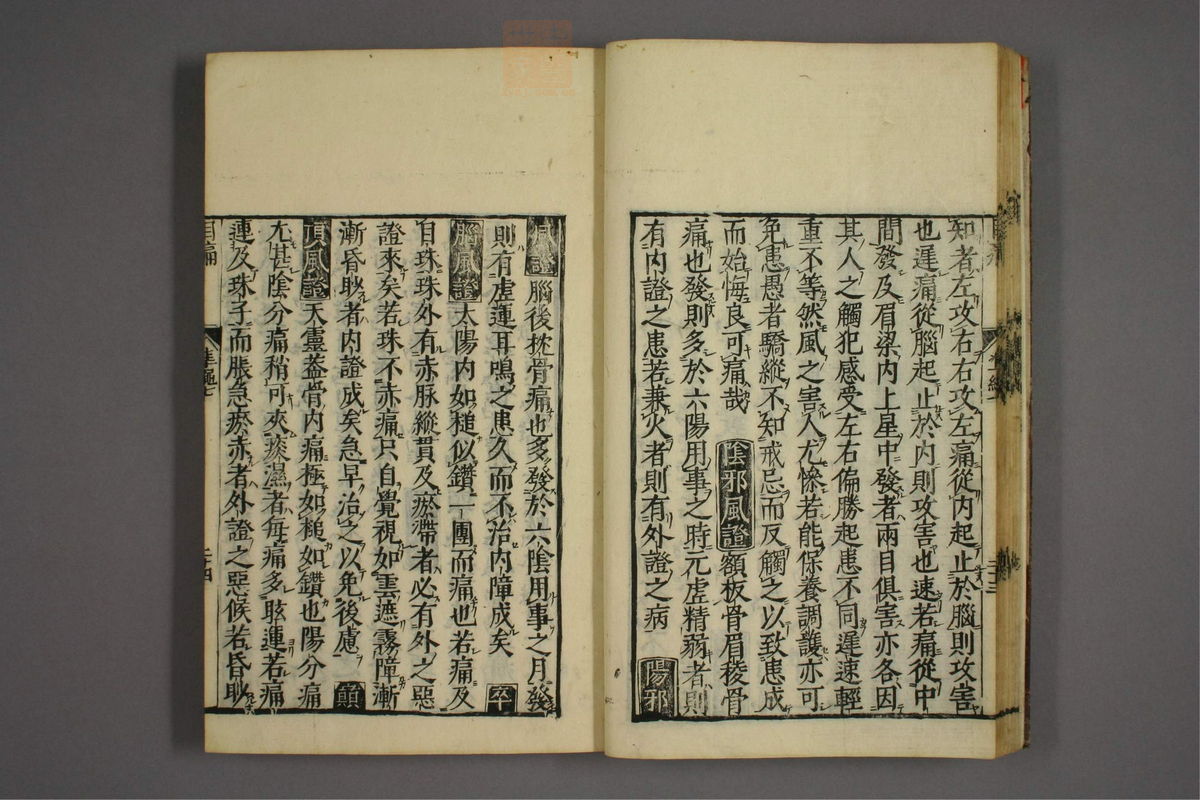 知者左攻右右攻左痛從內起止於腦則攻害
也遲痛從腦起止於內則攻害也速若痛從中
間發及眉梁內上星中發者兩目俱害亦各因
其人之觸犯感受左右偏勝起患不同遲速輕
重不等然風之害人尤慘若能保養調護亦可
免患愚者驕縱不知戒忌而反觸之以致患成
而始悔良可痛哉 陰邪風證 額板骨眉稜骨
痛也發則多於六陽用事之時元虛精弱者則
有內證之患若兼火者則有外證之病 陽邪
風證 腦後枕骨痛也多發於六陰用事之月發
則有虛運耳鳴之患久而不治內障成矣 卒
腦風證 太陽內如槌似鑽一團而痛也若痛及
目珠珠外有赤脉縱貫及瘀滯者必有外之惡
證來矣若珠不赤痛只自覺視如雲遮霧障漸
漸昏眇者內證成矣急早治之以免後慮 巔
頂風證 天靈蓋骨內痛極如槌如鑽也陽分痛
尤甚陰分痛稍可夾痰濕者每痛多眩運若痛
連及珠子而脹急瘀赤者外證之惡候若昏眇
目痛
準繩七
二十四